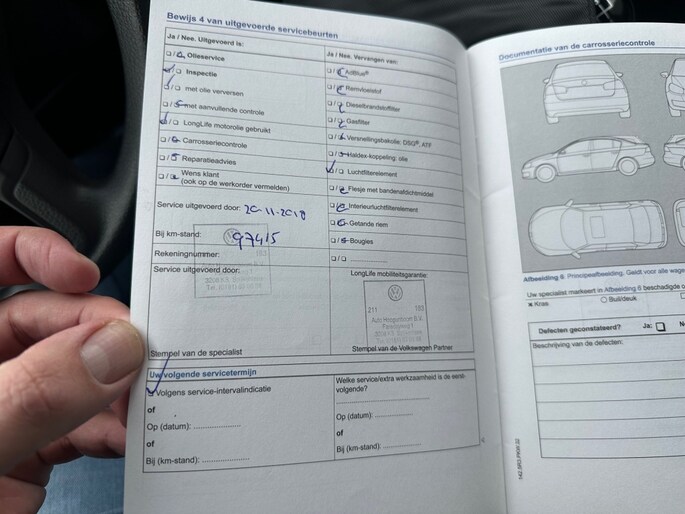 Bewijs 4 van uitgevoerde servicebeurten
Ja / Nee. Uitgevoerd is:
Olieservice
Inspectie
met olie verversen
met aanvullende controle
LongLife motorolie gebruikt
Carrosseriecontrole
Reparatieadvies
Wens klant
(ook op de werkorder vermelden)
Service uitgevoerd door: 20-11-2018
Bij km-stand: 97415
Rekeningnummer:
Service uitgevoerd door:
Stempel van de specialist
Ja / Nee. Vervangen van:
AdBlue®
Remvloeistof
Dieselbrandstoffilter
Gasfilter
Versnellingsbakolie: DSG®, ATF
Haldex-koppeling: olie
Luchtfilterelement
Flesje met bandenafdichtmiddel
Interieurluchtfilterelement
Getande riem
Bougies
LongLife mobiliteitsgarantie:
211 183
Stempel van de Volkswagen Partner
Uw volgende servicetermijn
Volgens service-intervalindicatie
of
Op (datum): ....................
of
Bij (km-stand): ....................
Welke service/extra werkzaamheid is de eerst-
volgende?
Op (datum): ....................
of
Bij (km-stand): ....................
Documentatie van de carrosseriecontrole
Afbeelding 6 Principeafbeelding. Geldt voor alle
Uw specialist markeert in Afbeelding 6 beschadigde
Kras
Buil/deuk
Defecten geconstateerd? Ja:
Beschrijving van de defecten: